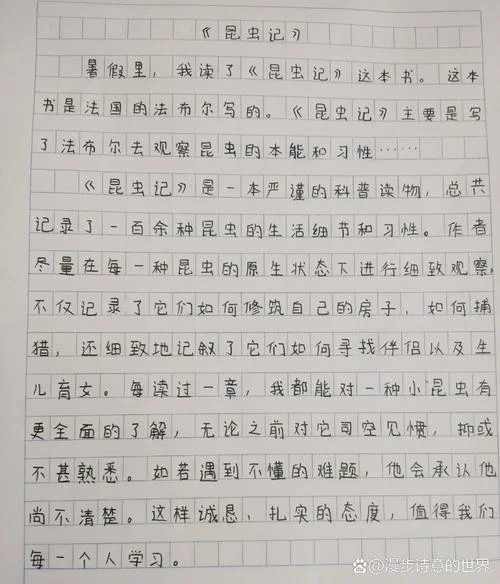 《昆虫记》
暑假里，我读了《昆虫记》这本书。这本
书是法国的法布尔写的。《昆虫记》主要是写
了法布尔去观察昆虫的本能和习性……
《昆虫记》是一本严谨的科普读物，总共
记录了一百余种昆虫的生活细节和习性。作者
尽量在每一种昆虫的原生状态下进行细致观察，
不仅记录了它们如何修筑自己的房子，如何捕
猎，还细致地记叙了它们如何寻找伴侣以及生
儿育女。每读过一章，我都能对一种小昆虫有
更全面的了解，无论之前对它司空见惯，抑或
不甚熟悉。如若遇到不懂的难题，他会承认他
尚不清楚。这样诚恳、扎实的态度，值得我们
每一个人学习。
@漫步诗意的世界